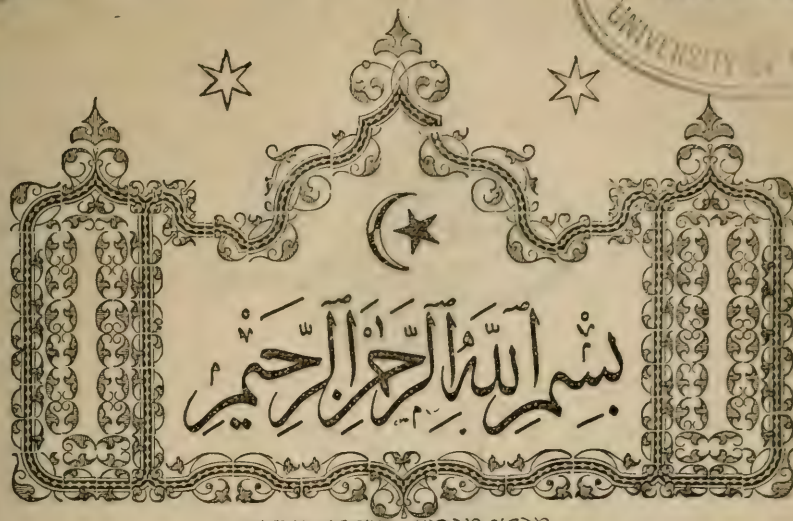 UNIVERSITY
بِسْمِ ٱللَّهِ ٱلرَّحْمٰنِ ٱلرَّحِيمِ